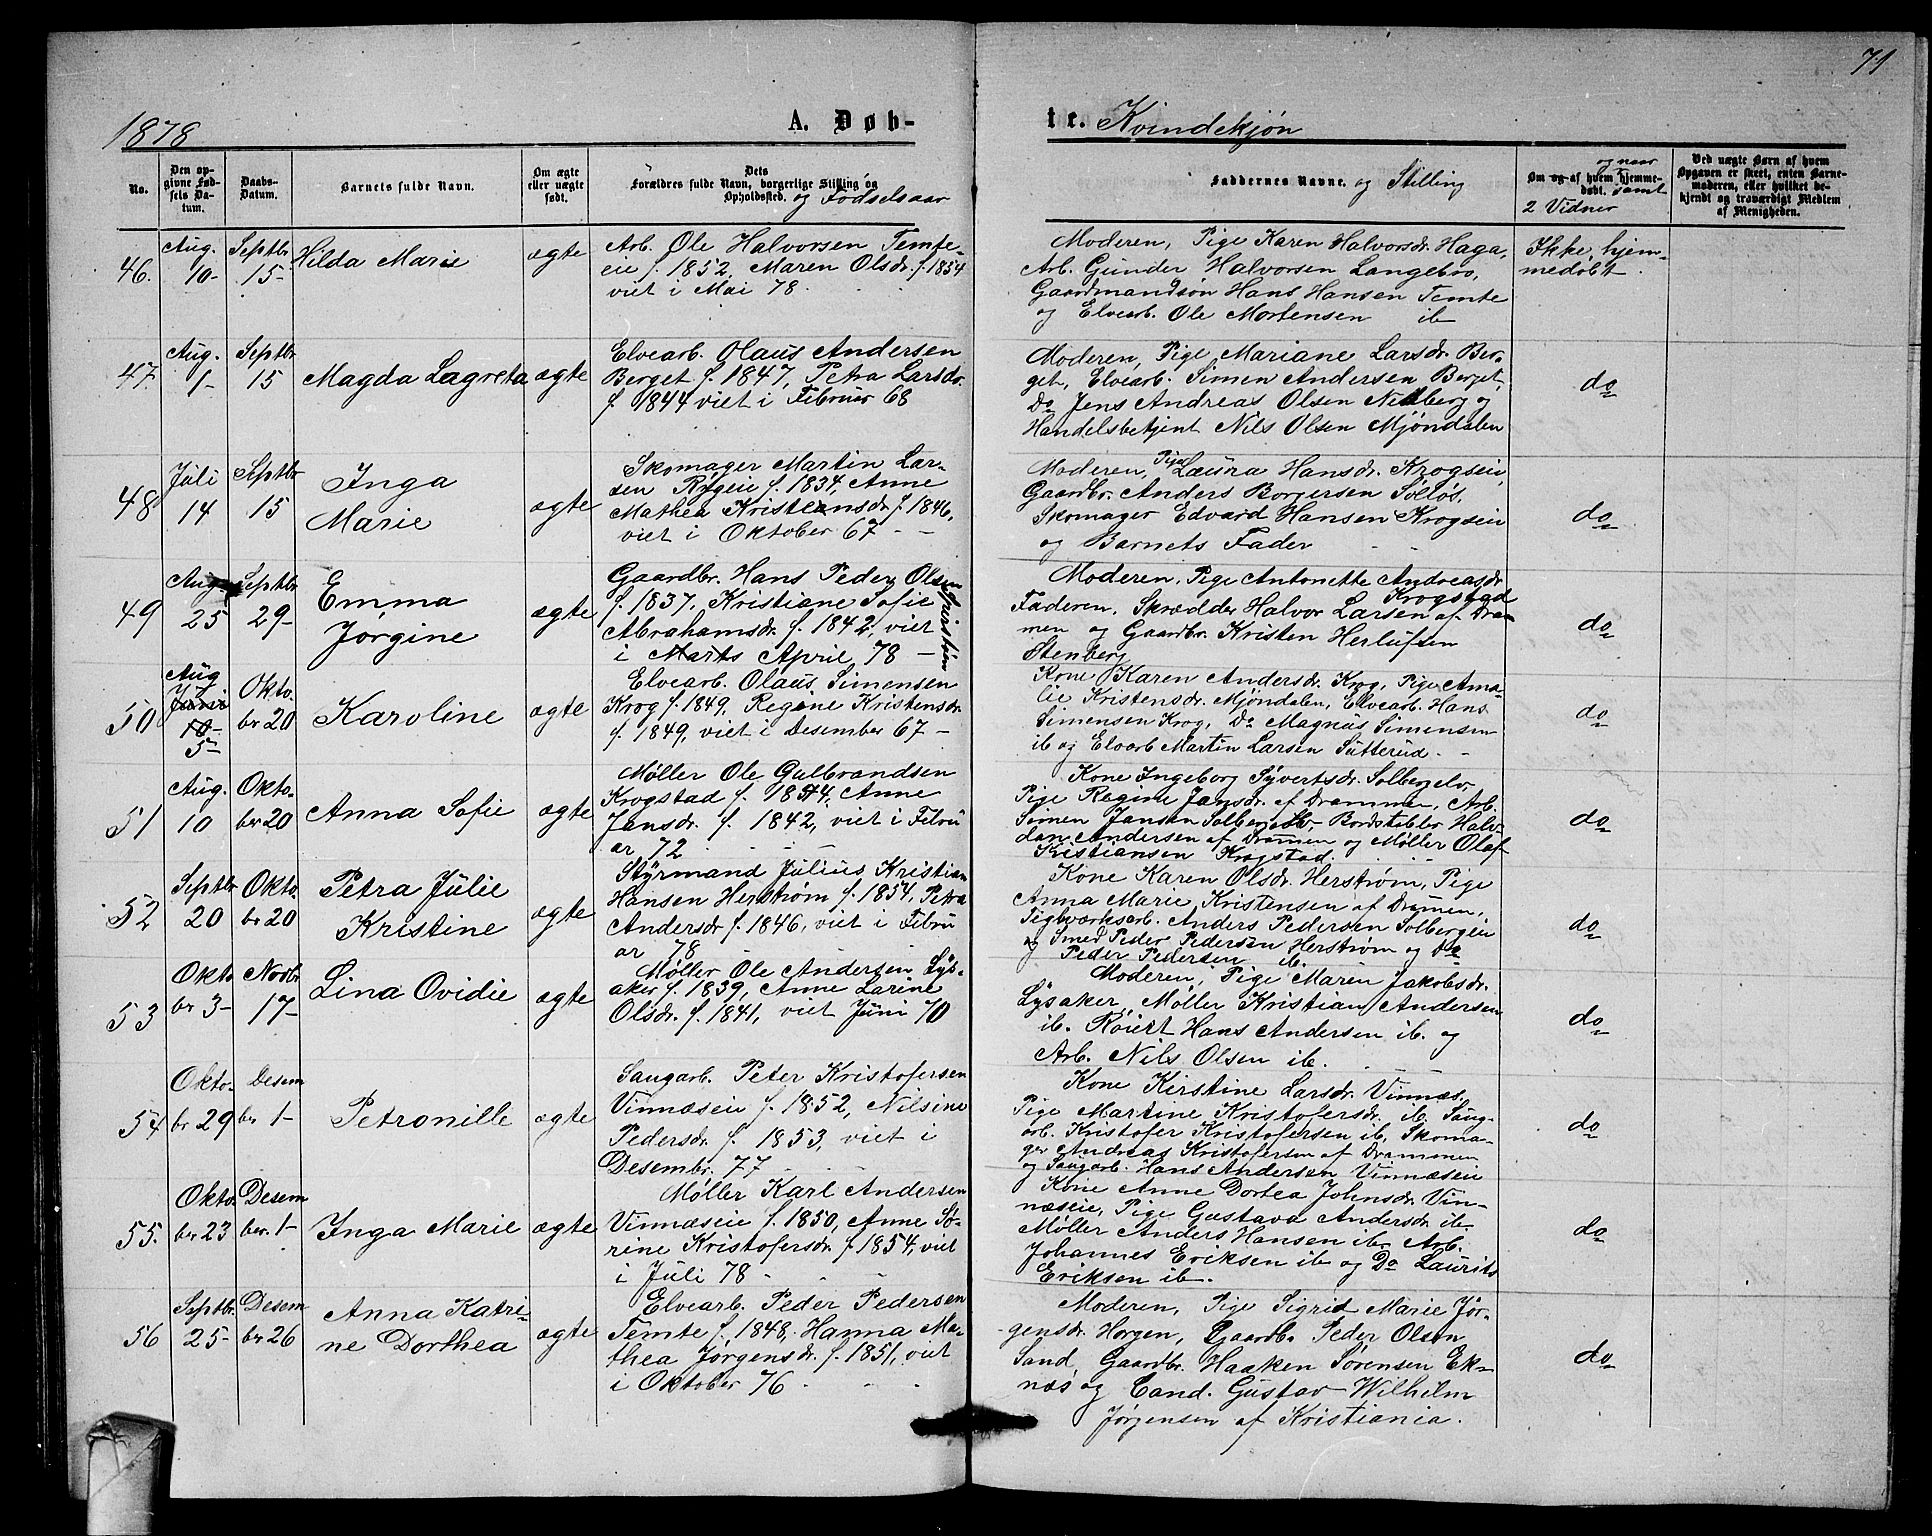 71
1878
A. Døb-
te. Kvindekjøn
No.
Den opgivne Fødsels Datum.
Daabs-Datum.
Barnets fulde Navn.
Om ægte eller uægte født.
Dets Forældres fulde Navn, borgerlige Stilling og Opholdssted. og Fødselsaar
Faddernes Navne. og Stilling
Om og af hvem og naar hjemmedøbt. samt 2 Vidner
Ved uægte Børn af hvem Opgaven er skeet, enten Barnemoderen, eller hvilket bekjendt og troværdigt Medlem af Menigheden.
46.
Aug. 10-
Septbr 15-
Hilda Marie
ægte
Arb. Ole Halvorsen Temte-
eie f. 1852, Maren Olsdr. f. 1854
viet i Mai 78.
Moderen, Pige Karen Halvorsdr. Haga,
Arb. Gunder Halvorsen Langebro,
Gaardmandsøn Hans Hansen Temte
og Elvearb. Ole Mortensen ib
Ikke hjem-
medøbt.
47
Aug. 1-
Septbr 15
Magda Lagreta
ægte
Elvearb. Olaus Andersen
Berget f. 1847, Petra Larsdr.
f. 1844 viet i Februar 68
Moderen, Pige Mariane Larsdr. Ber-
get, Elvearb. Simen Andersen Berget,
Do Jens Andreas Olsen Nedberg og
Handelsbetjent Nils Olsen Mjøndalen
do
48
Juli 14
Septbr 15
Inga
Marie
ægte
Skomager Martin Lar-
sen Rygeie f. 1834, Anne
Mathea Kristiansdr. f. 1846,
viet i Oktober 67 - -
Moderen, Pige Laura Hansdr. Krogseie,
Gaardbr. Anders Borgersen Solløs,
Skomager Edvard Hansen Krogseie
og Barnets Fader
do
49
Aug. 25
Septbr 29-
Emma
Jørgine
ægte
Gaardbr. Hans Peder Olsen
f. 1837, Kristiane Sofie
Abrahamsdr. f. 1842, viet
i Marts April 78 -
Moderen, Pige Antonette Andreasdr
Krogstad
Faderen, Skrædder Halvor Larsen af Dram-
men og Gaardbr. Kristen Herlufsen
Stenberg
do
50
Aug
Juni
10-
5-
Okto-
br 20
Karoline
ægte
Elvearb. Olaus Simensen
Krog f. 1849, Regine Kristensdr.
f. 1849, viet i Desember 67 -
Kone Karen Andersdr. Krog, Pige Ama-
lie Kristensdr. Mjøndalen, Elvearb. Hans
Simensen Krog, Do Magnus Simensen
ib og Elvarb Martin Larsen Sutterud. -
do
51
Aug. 10
Okto-
br 20
Anna Sofie
ægte
Møller Ole Gulbrandsen
Krogstad f. 1844, Anne
Jansdr. f. 1842, viet i Febru
ar 72
Kone Ingeborg Syvertsdr. Solbergelv,
Pige Regine Jansdr. af Drammen, Arb.
Simen Jansen Solbergelv, Bordstabler Halv-
dan Andersen af Drammen og Møller Olaf
Kristiansen Krogstad.
do
52
Septbr 20
Okto-
br 20
Petra Julie
Kristine
ægte
Styrmand Julius Kristian
Hansen Herstrøm f. 1854, Petra
Andersdr f. 1846, viet i Febru
ar 78
Kone Karen Olsdr. Herstrøm, Pige
Anna Marie Kristensen af Drammen,
Teglværksarb. Anders Pedersen Solbergeie
og Smed Peder Pedersen Herstrøm og Do
Peder Pedersen ib.
do
53
Okto
br 3-
Novbr 17-
Lina Ovidie
ægte
Møller Ole Andersen Lys-
aker f. 1839, Anne Larine
Olsdr. f. 1841, viet Juni 70
Moderen, Pige Maren Jakobsdr.
Lysaker, Møller Kristian Andersen
ib. Røiert Hans Andersen ib. og
Arb. Nils Olsen ib.
do
54
Okto-
br 29
Desem
ber 1-
Petronille
ægte
Saugarb. Peter Kristofersen
Vinnæseie f. 1852, Nilsine
Pedersdr. f. 1853, viet i
Desembr. 77
Kone Kirstine Larsdr. Vinnæs,
Pige Martine Kristofersdr. ib. Saug-
arb. Kristofer Kristofersen ib, Skoma-
ger Andreas Kristofersen af Drammen
og Saugarb. Hans Andersen Vinnæseie
do
55.
Okto
ber 23
Desem
ber. 1-
Inga Marie
ægte
Møller Karl Andersen
Vinnæseie f. 1850, Anne Sø-
rine Kristofersdr. f. 1854, viet
i Juli 78
Kone Anne Dortea Johnsdr. Vin-
næseie, Pige Gustava Andersdr. ib.
Møller Anders Hansen ib, Arb.
Johannes Eriksen ib og Do Laurits
Eriksen ib.
do
56
Septbr. 25-
Desem
br 26
Anna Katri-
ne Dorthea
ægte
Elvearb. Peder Pedersen
Temte f. 1848. Hanna Ma-
thea Jørgensdr. f. 1851, viet
i Oktober 76
Moderen, Pige Sigrid Marie Jør-
gensdr. Horgen, Gaardb. Peder Olsen
Sand, Gaardbr. Haaken Sørensen Ek-
næs og Cand. Gustav Wilhelm
Jørgensen af Kristiania.
do